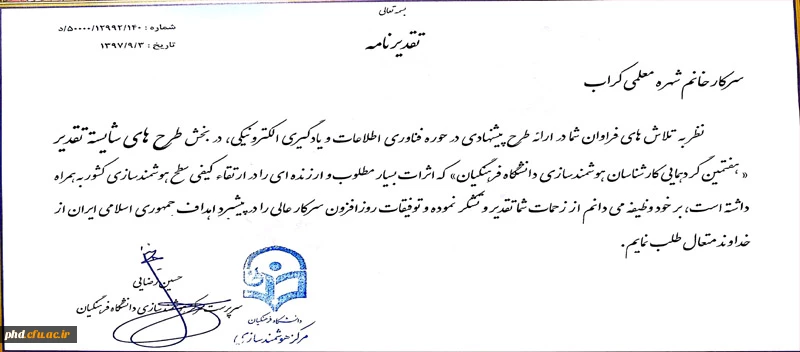 بسمه تعالی
شماره : ۵۰۰۰۰/۱۲۹۹۲/۱۴۰/د
تاریخ : ۱۳۹۷/۹/۳
تقدیرنامه
سرکار خانم شهره معلمی کراب
نظر به تلاش های فراوان شما در ارائه طرح پیشنهادی در حوزه فناوری اطلاعات و یادگیری الکترونیکی، در بخش طرح های شایسته تقدیر
« هفتمین گردهمایی کارشناسان هوشمندسازی دانشگاه فرهنگیان» که اثرات بسیار مطلوب و ارزنده ای را در ارتقاء کیفی سطح هوشمندسازی کشور به همراه
داشته است، بر خود وظیفه می دانم از زحمات شما تقدیر و تشکر نموده و توفیقات روزافزون سرکار عالی را در پیشبرد اهداف جمهوری اسلامی ایران از
خداوند متعال طلب نمایم.
حسین رضایی
سرپرست مرکز هوشمندسازی دانشگاه فرهنگیان
دانشگاه فرهنگیان
مرکز هوشمندسازی
phd.cfu.ac.ir